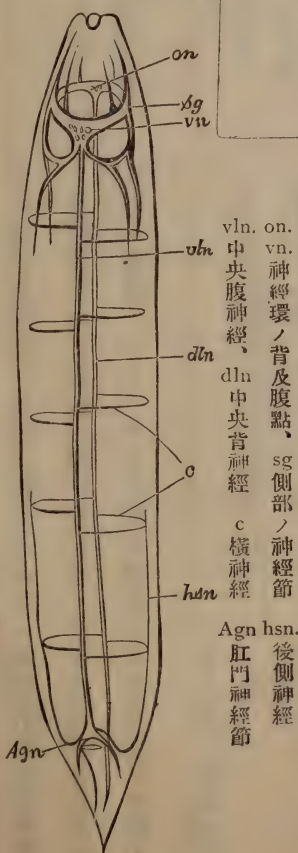 on
sg
vn
vln
dln
c
hsn
Agn
on. vn. 神經環ノ背及腹點、 sg 側部ノ神經節
vln. 中央腹神經、 dln 中央背神經 c 橫神經
hsn. 後側神經
Agn 肛門神經節